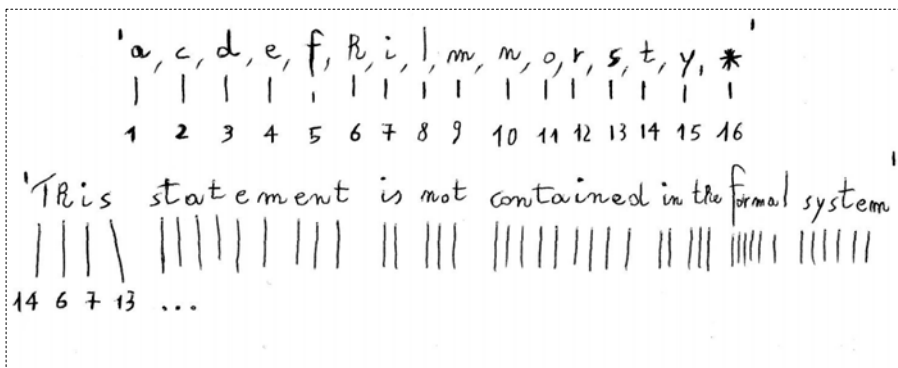 'a, c, d, e, f, h, i, l, m, n, o, r, s, t, y, *'
1 2 3 4 5 6 7 8 9 10 11 12 13 14 15 16
'This statement is not contained in the formal system'
14 6 7 13 ...